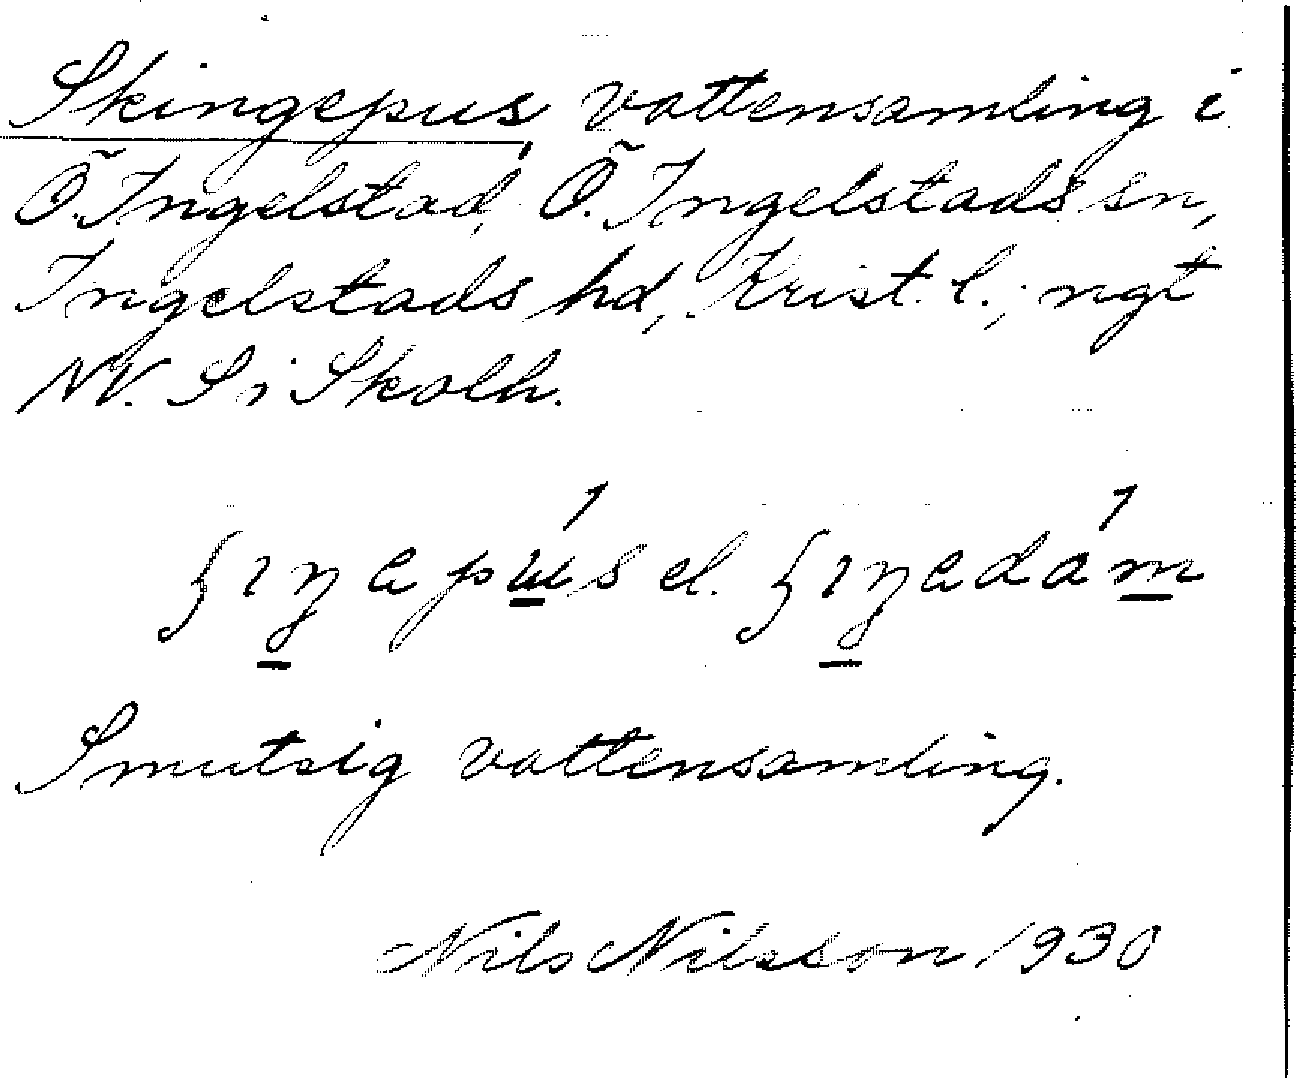 Skingepus, vattensamling i
Ö. Ingelstad, Ö. Ingelstads sn,
Ingelstads hd, Krist. l.; ngt
NV. S i Skolh.
el.
Smutsig vattensamling.
Nils Nilsson 1930